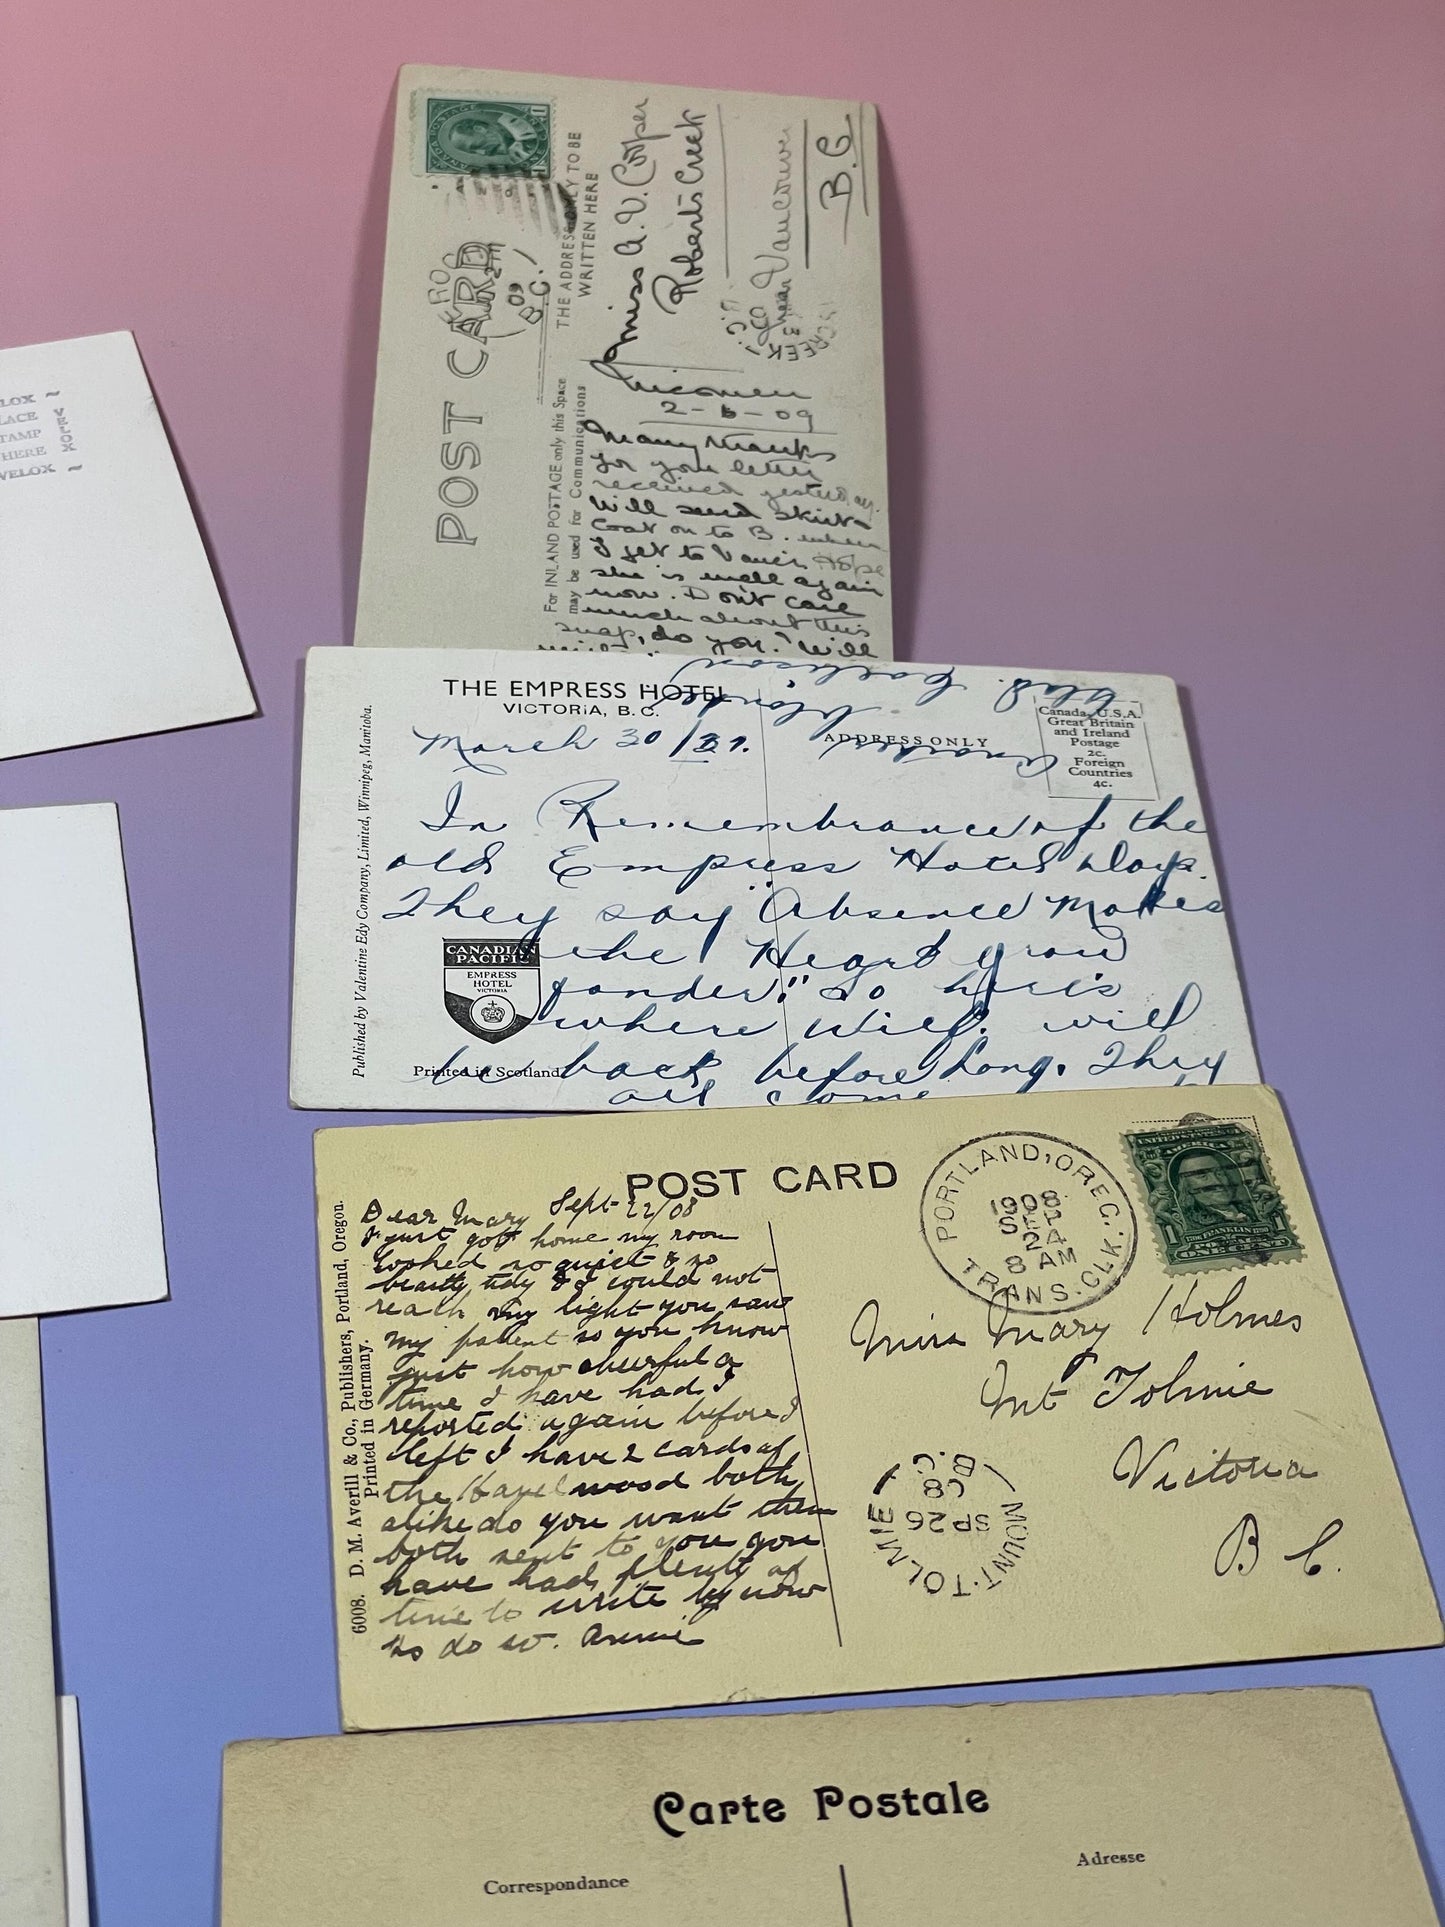 VELOX ~
PLACE
STAMP
HERE
VELOX ~
VELOX
CANADA POSTAGE
POST CARD
B.C.
09
THE ADDRESS ONLY TO BE
WRITTEN HERE
Miss A. V. Cooper
Roberts Creek
near Vancouver
B.C
CREEK
B.C.
For INLAND POSTAGE only this Space
may be used for Communications
2-6-09
Many thanks
for your letter
received yesterday.
Will send skirt &
coat on to B. when
I get to Vanc'r. Hope
she is well again
now. Don't care
much about this
snap, do you? Will
THE EMPRESS HOTEL
VICTORIA, B.C.
March 30/
ADDRESS ONLY
Canada, U.S.A.
Great Britain
and Ireland
Postage
2c.
Foreign
Countries
4c.
In Remembrance of the
old Empress Hotel Days.
They say "Absence Makes
the Heart grow
fonder." So here's
where Wilf. will
be back before long. They
all come
CANADIAN
PACIFIC
EMPRESS
HOTEL
VICTORIA
Printed in Scotland
Published by Valentine Edy Company, Limited, Winnipeg, Manitoba.
POST CARD
PORTLAND, OREG.
1908
SEP
24
8 AM
TRANS. CLK.
UNITED STATES OF AMERICA
1
FRANKLIN
ONE CENT
Sept 22/08
Dear Mary
I just got home my room
looked so quiet & so
beastly tidy & I could not
reach my light you saw
my patient so you know
just how cheerful a
time I have had I
reported again before I
left I have 2 cards of
the Hazelwood both
alike do you want them
both sent to you you
have had plenty of
time to write by now
so do so. Annie
Miss Mary Holmes
Mt Tolmie
Victoria
B C.
MOUNT-TOLMIE
SP 26
08
B.C.
6008. D. M. Averill & Co., Publishers, Portland, Oregon.
Printed in Germany.
Carte Postale
Correspondance
Adresse